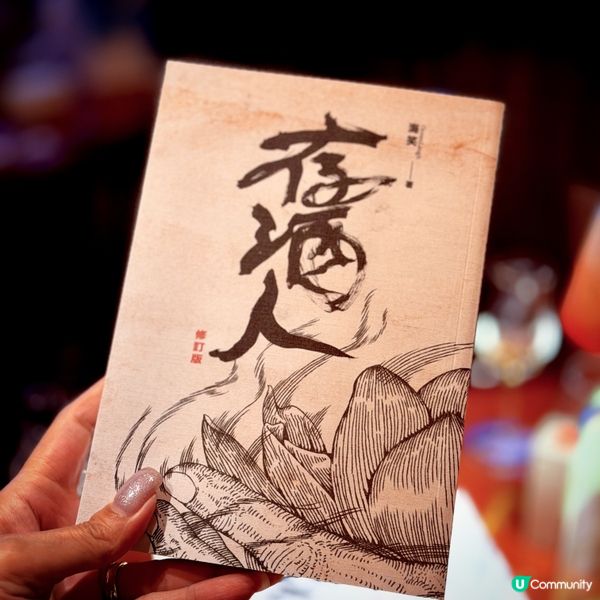 存酒人
修訂版
U Community